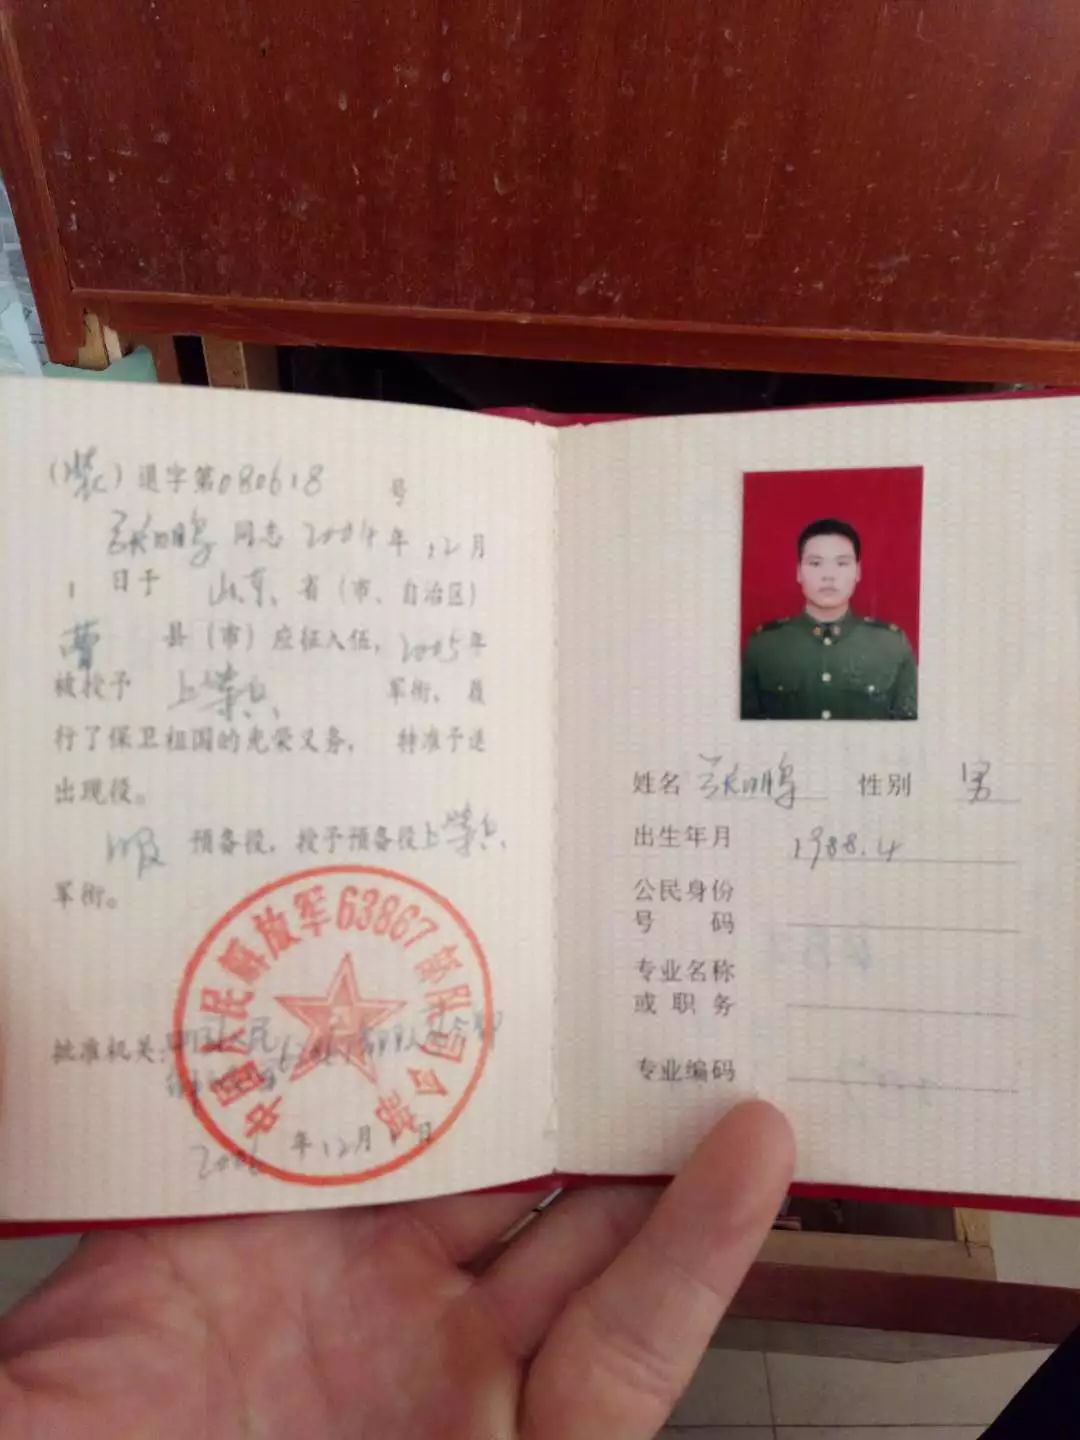 （装）退字第080618号
同志2004年12月
1日于山东省（市、自治区）
曹县（市）应征入伍，2005年
被授予上等兵军衔，履
行了保卫祖国的光荣义务，特准予退
出现役。
服预备役，授予预备役上等兵
军衔。
批准机关：
2006年12月1日
中国人民解放军63867部队司令部
姓名 性别 男
出生年月 1988.4
公民身份
号码
专业名称
或职务
专业编码